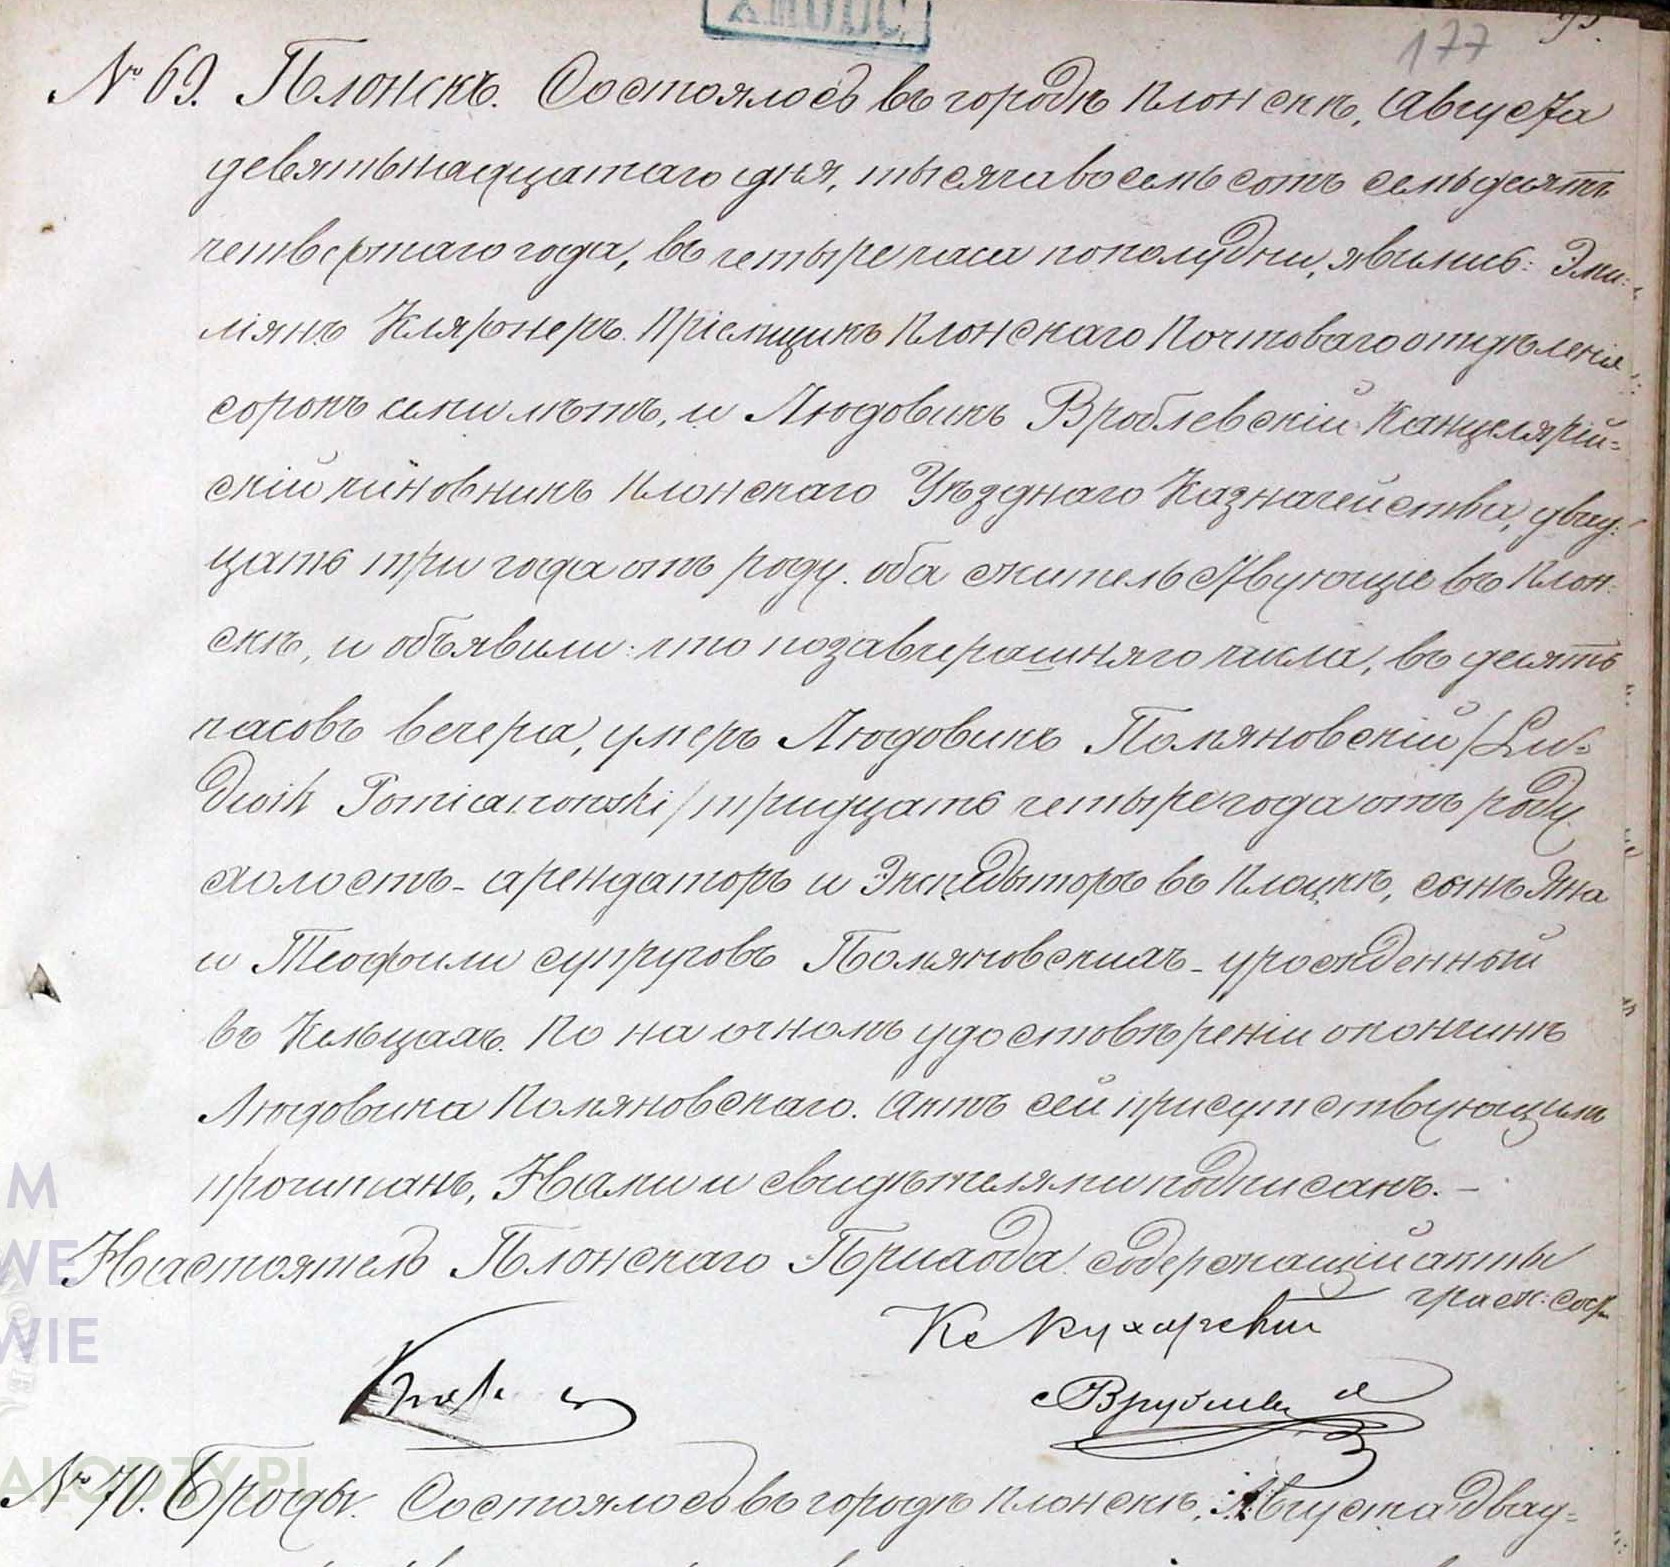 177
№ 69. Плонскъ. Состоялось въ городѣ Плонскѣ, Августа
девятьнадцатаго дня, тысяча восемьсотъ семьдесятъ
четвертаго года, въ четыре часа пополудни, явились: Эми-
ліянъ Клярнеръ Пріемщикъ Плонскаго Почтоваго отдѣленія
сорокъ семи лѣтъ, и Людовикъ Вроблевскій Канцелярій-
скій чиновникъ Плонскаго Уѣзднаго Казначейства, двад-
цать три года отъ роду. оба жительствующіе въ Плон-
скѣ, и объявили: что позавчерашняго числа, въ десять
часовъ вечера, умеръ Людовикъ Помяновскій /Lu-
dwik Pomianowski/ тридцать четыре года отъ роду
холостъ - арендаторъ и Экспедыторъ въ Плоцкѣ, сынъ Яна
и Теофили супруговъ Помяновскихъ - урожденный
въ Кельцахъ. По наочномъ удостовѣреніи окончинѣ
Людовика Помяновскаго. Актъ сей присутствующимъ
прочитанъ, Нами и свидѣтелями подписанъ. —
Настоятель Плонскаго Прихода содержащій акты
граж: сост
Кс Кухарскій
Врублевск
№ 70. Броды. Состоялось въ городѣ Плонскѣ, Августа двад-